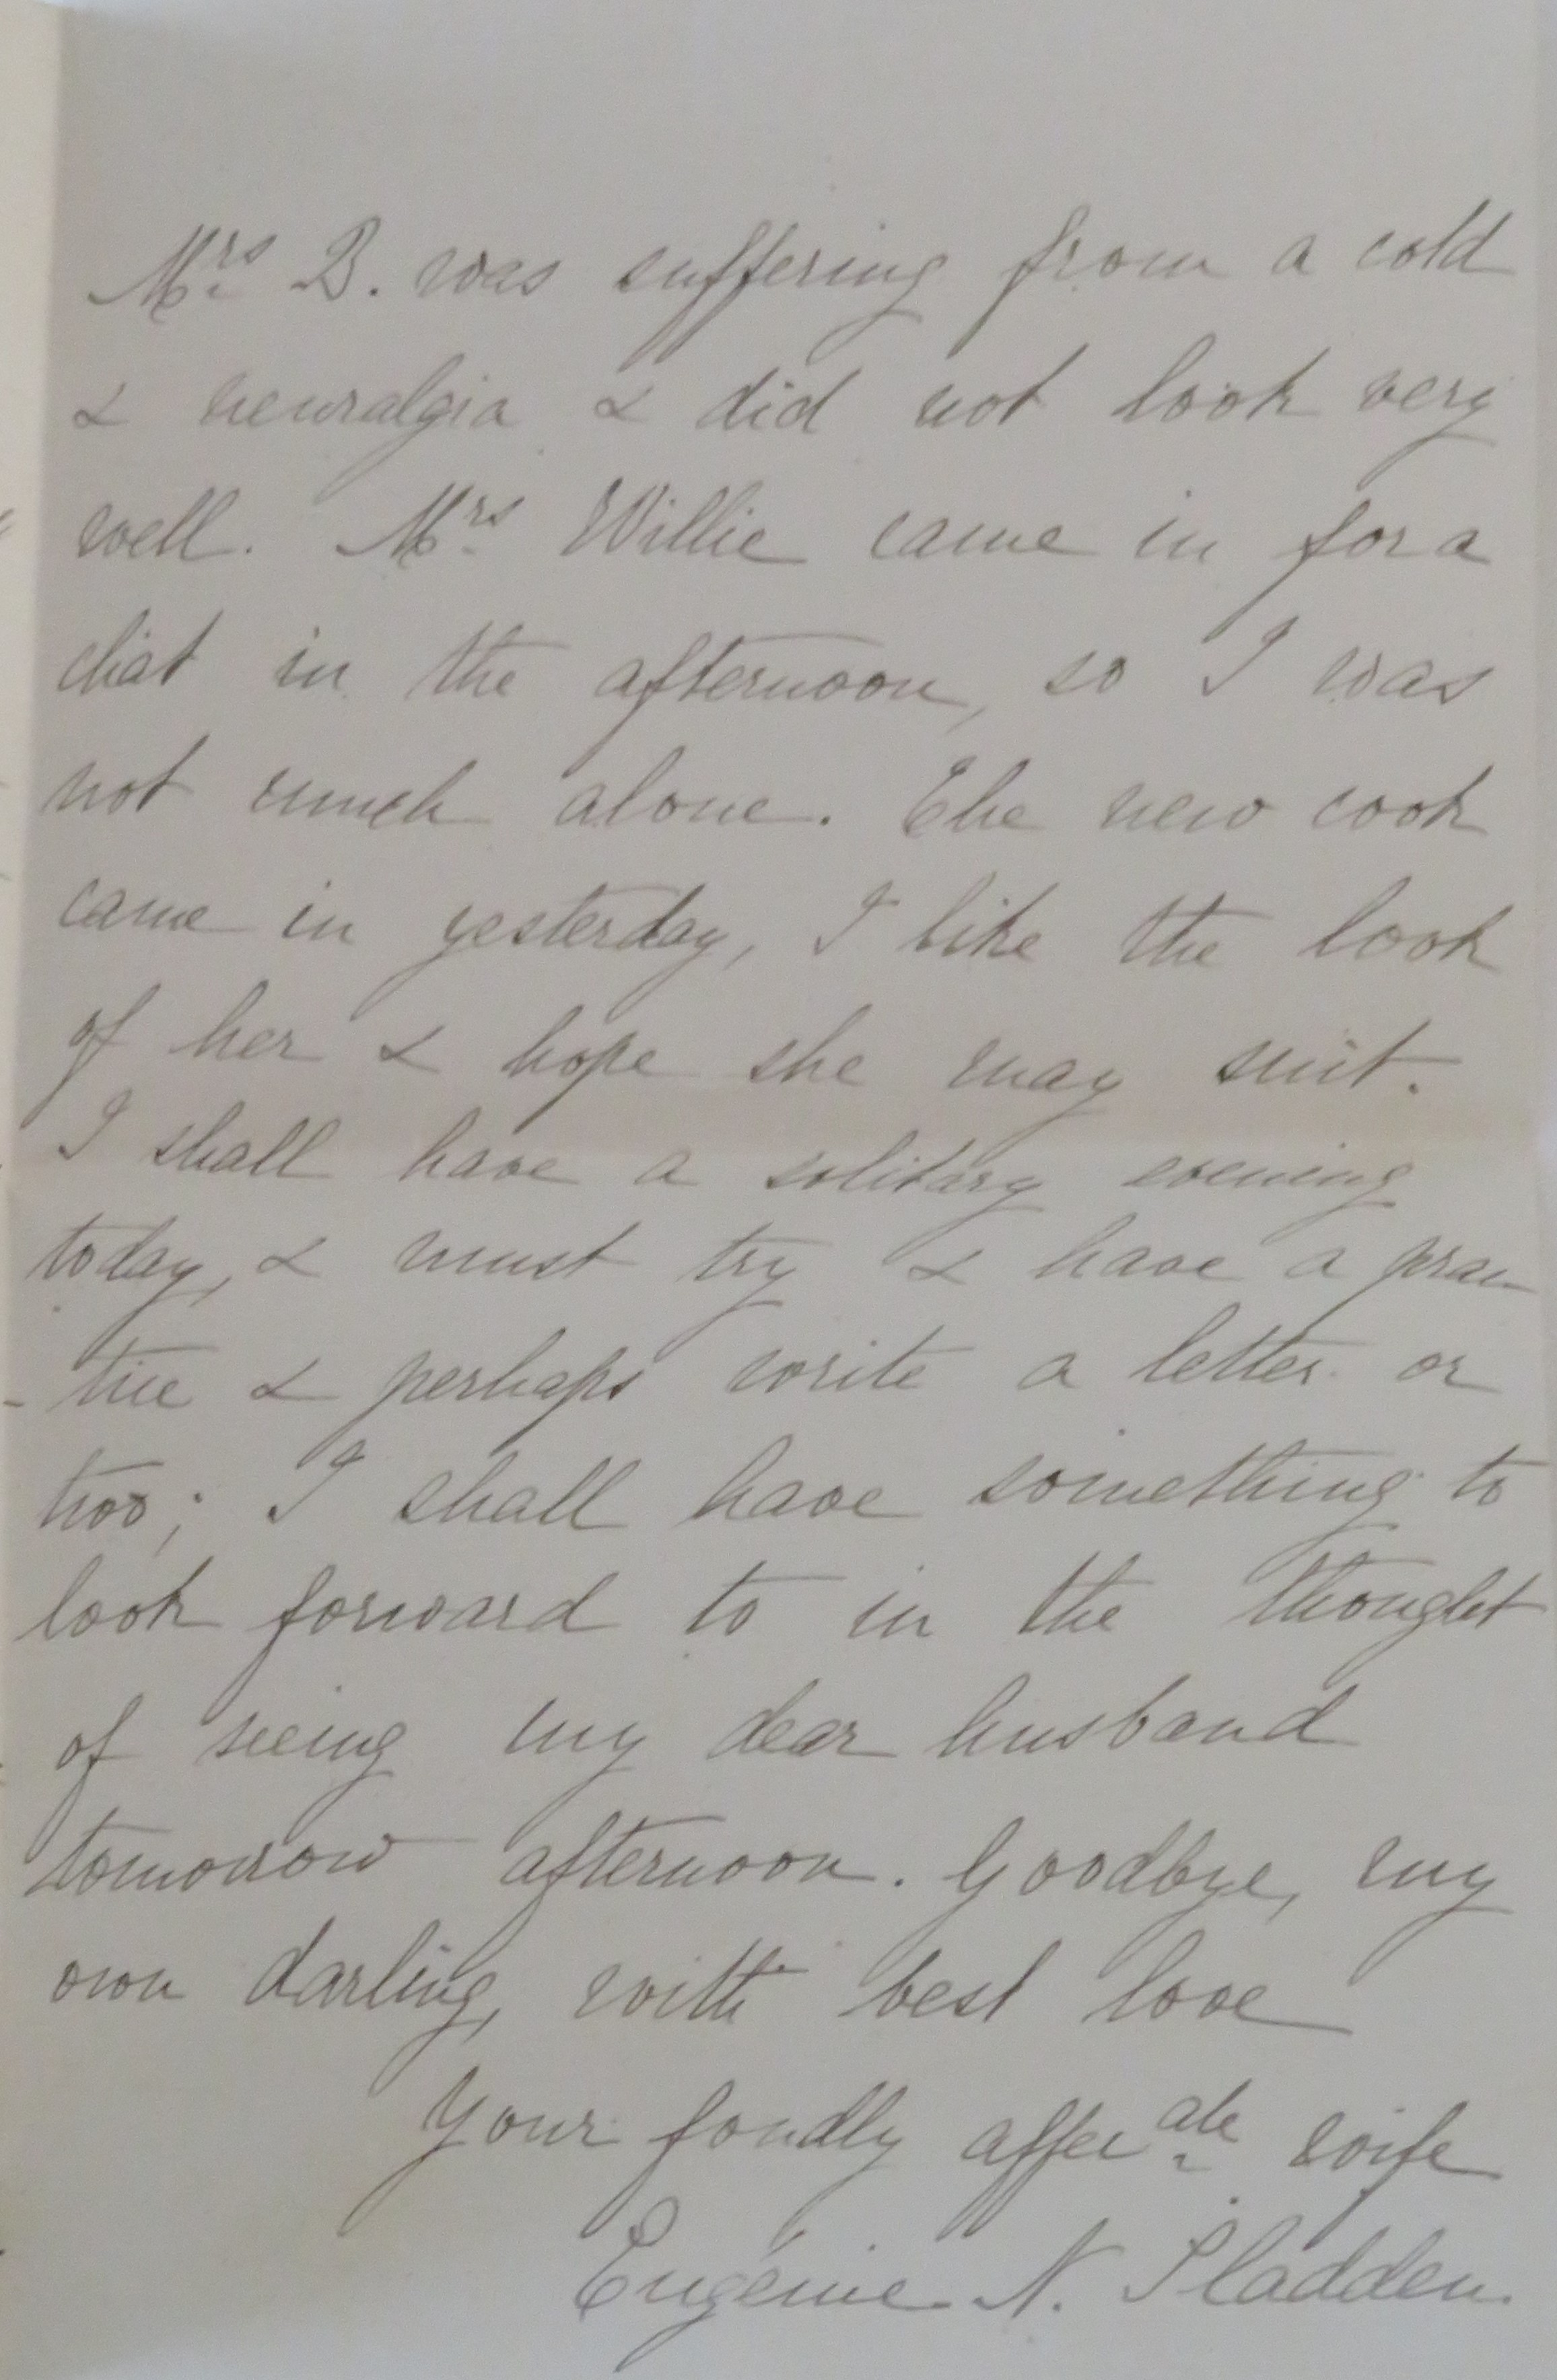 Mrs. B. was suffering from a cold
& neuralgia & did not look very
well. Mrs. Willie came in for a
chat in the afternoon, so I was
not much alone. The new cook
came in yesterday, I like the look
of her & hope she may suit.
I shall have a solitary evening
today, & must try & have a prac-
-tice & perhaps write a letter or
two; I shall have something to
look forward to in the thought
of seeing my dear husband
tomorrow afternoon. Goodbye, my
own darling, with best love
Your fondly affecate wife
Eugénie N. Sladden.